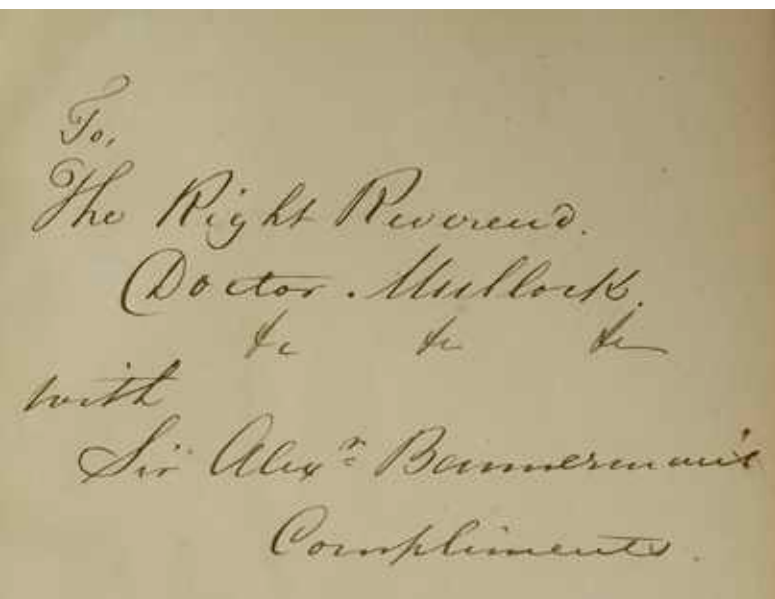 To,
The Right Reverend.
Doctor. Mullock.
&c &c &c
with
Sir Alexr Bannerman's
Compliments.